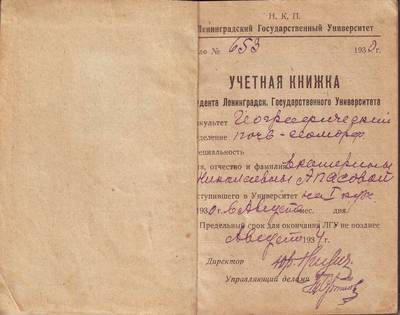 Н. К. П.
Ленинградский Государственный Университет
ло № 653 1930 г.
УЧЕТНАЯ КНИЖКА
дента Ленинградск. Государственного Университета
культет Географический
деление почв-геоморф
пециальность
я, отчество и фамилия Екатерины
Николаевны Апасовой
ступившего в Университет на I курс
1930 г. 6 Август мес. дня.
Предельный срок для окончания ЛГУ не позднее
Август 1934 г.
Директор
Управляющий делами